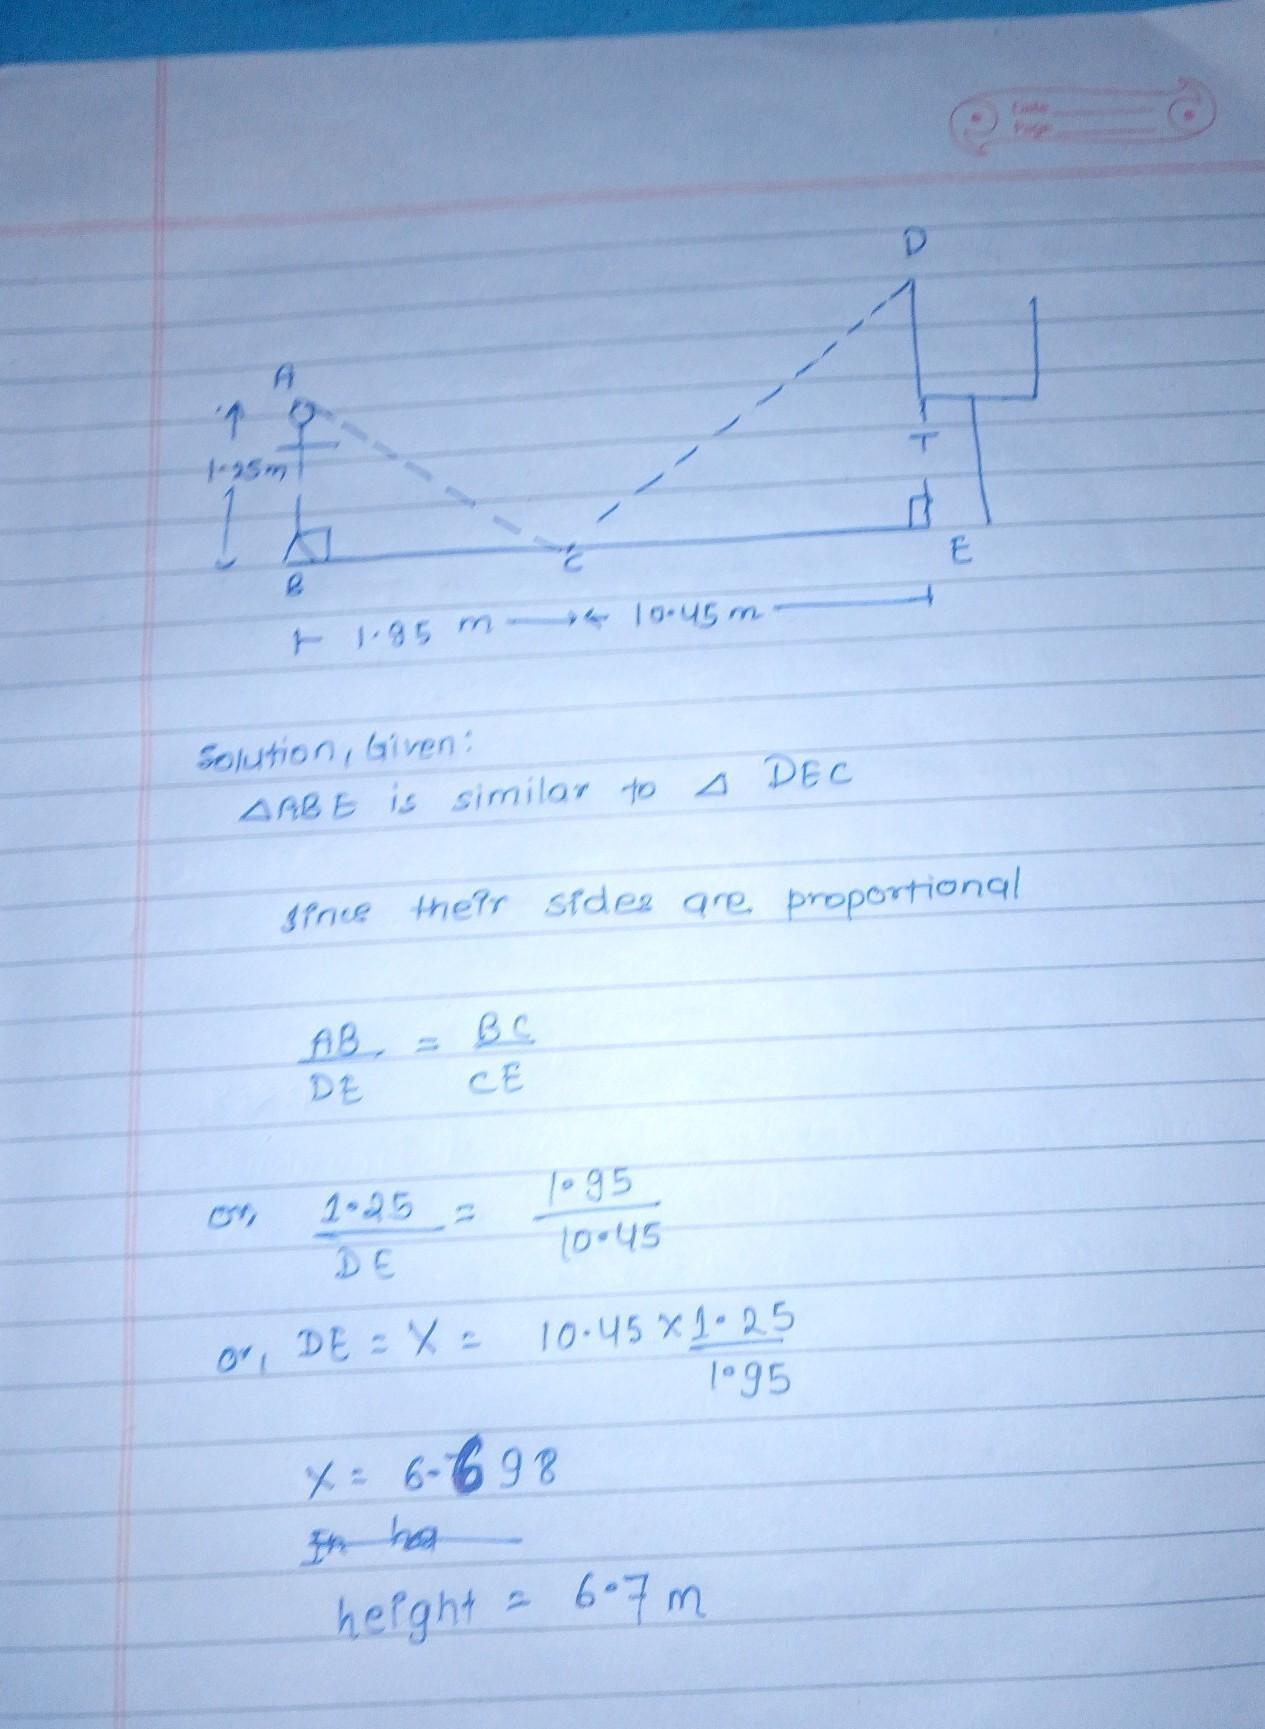 Date
Page
D
A
1.25m
B
C
E
1.95 m
10.45m
Solution, Given:
△ABE is similar to △ DEC
since their sides are proportional
AB = BC
DE CE
or, 1.25 = 1.95
DE 10.45
or, DE = X = 10.45 × 1.25
1.95
X = 6.698
height = 6.7 m